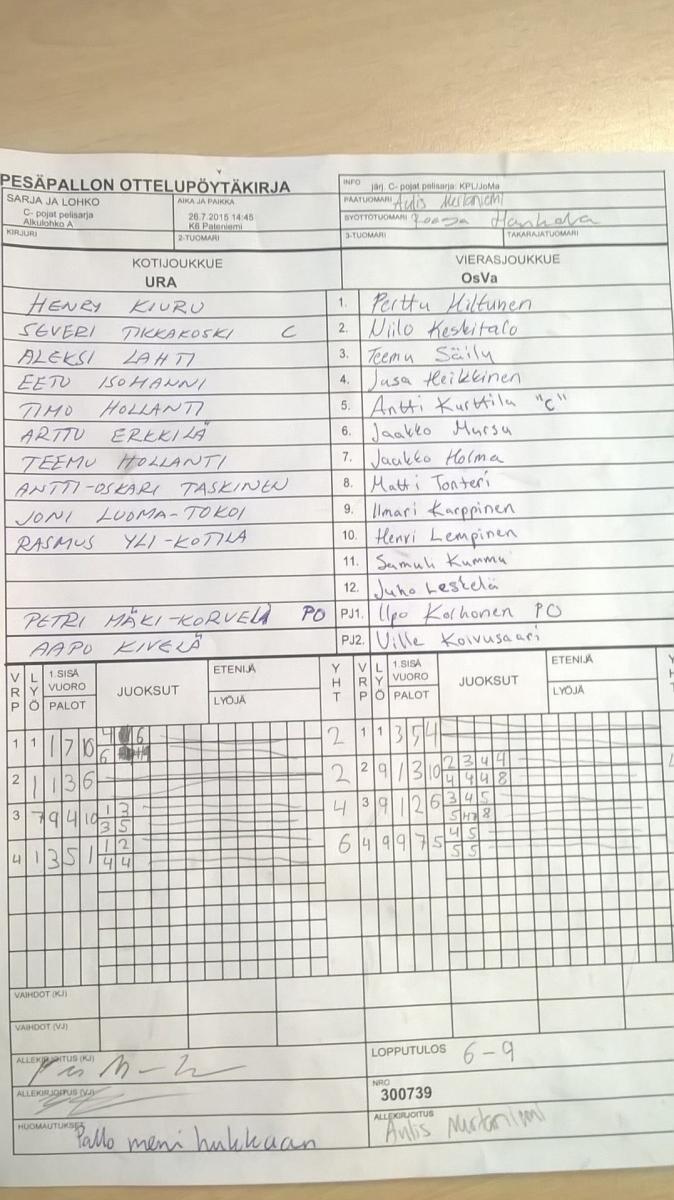 PESÄPALLON OTTELUPÖYTÄKIRJA
INFO järj. C- pojat pelisarja: KPL/JoMa
SARJA JA LOHKO
C- pojat pelisarja
Alkulohko A
AIKA JA PAIKKA
26.7.2015 14:45
K6 Pateniemi
PÄÄTUOMARI Aulis
SYÖTTÖTUOMARI
KIRJURI 2-TUOMARI 3-TUOMARI TAKARAJATUOMARI
KOTIJOUKKUE VIERASJOUKKUE
URA OsVa
HENRY KIURU 1. Perttu Hiltunen
SEVERI TIKKAKOSKI C 2. Niilo Keskitalo
ALEKSI LAHTI 3. Teemu Säily
EETU ISOHANNI 4. Jusa Heikkinen
TIMO HOLLANTI 5. Antti Kurttila "C"
ARTTU ERKKILÄ 6. Jaakko Mursu
TEEMU HOLLANTI 7. Jaakko Holma
ANTTI-OSKARI TASKINEN 8. Matti Tonteri
JONI LUOMA-TOKOI 9. Ilmari Karppinen
RASMUS YLI-KOTILA 10. Henri Lempinen
11. Samuli Kummu
12. Juho Leskelä
PETRI MÄKI-KORVELA PO PJ1. Upo Korhonen PO
AAPO KIVELÄ PJ2. Ville Koivusaari
VRP LYÖ 1.SISÄ VUORO PALOT JUOKSUT ETENIJÄ LYÖJÄ YHT VRP LYÖ 1.SISÄ VUORO PALOT JUOKSUT ETENIJÄ LYÖJÄ
1 1 1 7 10 4 6 2 1 1 3 5 4
6
2 1 1 3 6 2 2 9 1 3 10 2 3 4 4
4 4 4 8
3 7 9 4 10 1 3 4 3 9 1 2 6 3 4 5
3 5 5 8
4 1 3 5 1 1 2 6 4 9 9 7 5 4 5
4 4 5 5
VAIHDOT (KJ)
VAIHDOT (VJ)
ALLEKIRJOITUS (KJ) LOPPUTULOS 6-9
ALLEKIRJOITUS (VJ) NRO
300739
HUOMAUTUKSET Pallo meni hukkaan ALLEKIRJOITUS Aulis